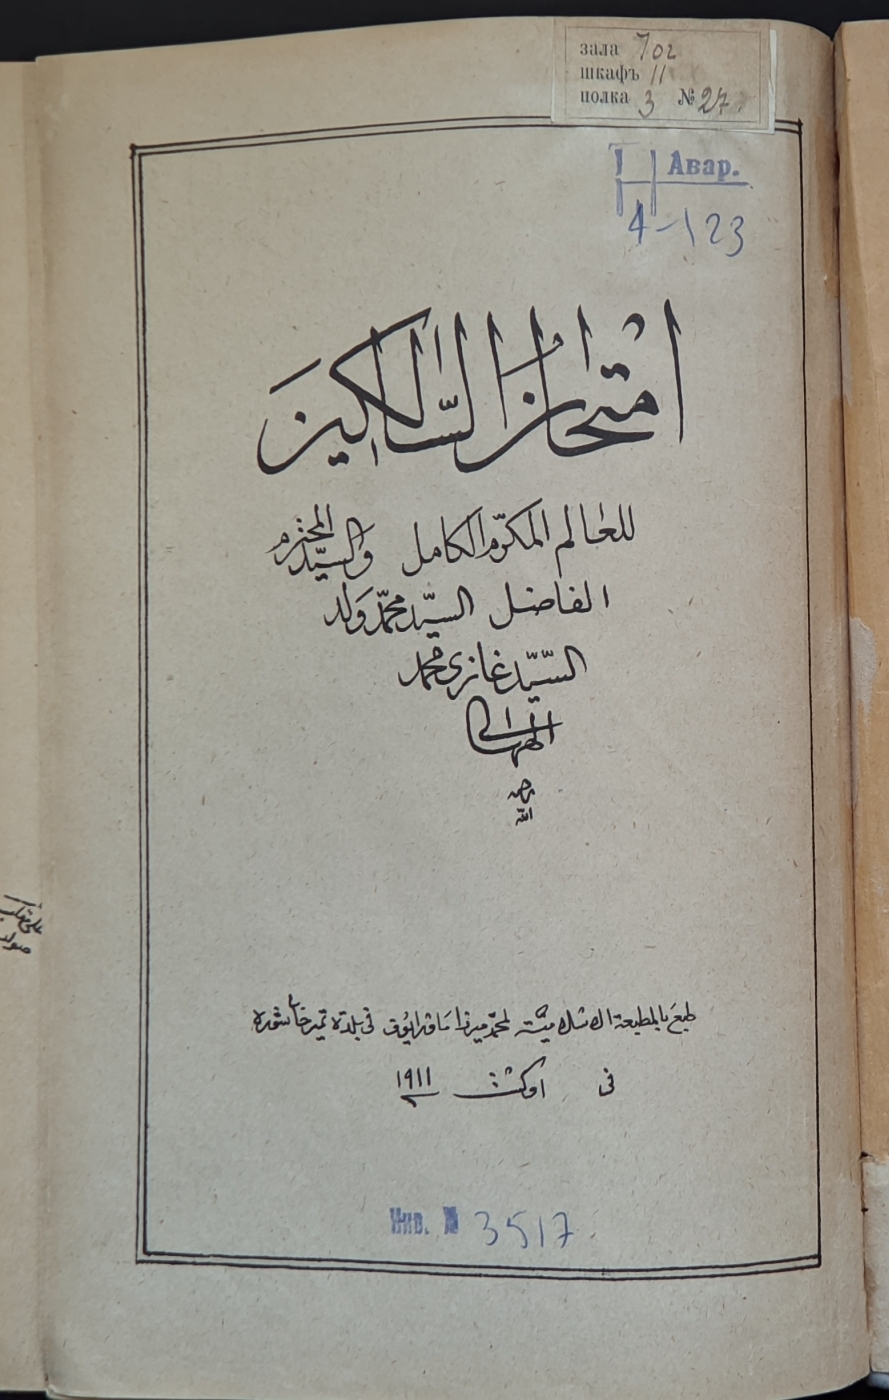 зала 702
шкафъ 11
полка 3 № 27
I Авар.
4-123
امتحان السّالكين
للعالم المكرّم الكامل والسيّد المحترم
الفاضل السيّد محمّد ولد
السّيّد غازى محمد
الله
طبع بالمطبعة الاسلاميّة لمحمّد ميرزا ماورايوف فى بلدة تمير خان شوره
فى اوكشت ١٩١١
Инв. № 3517